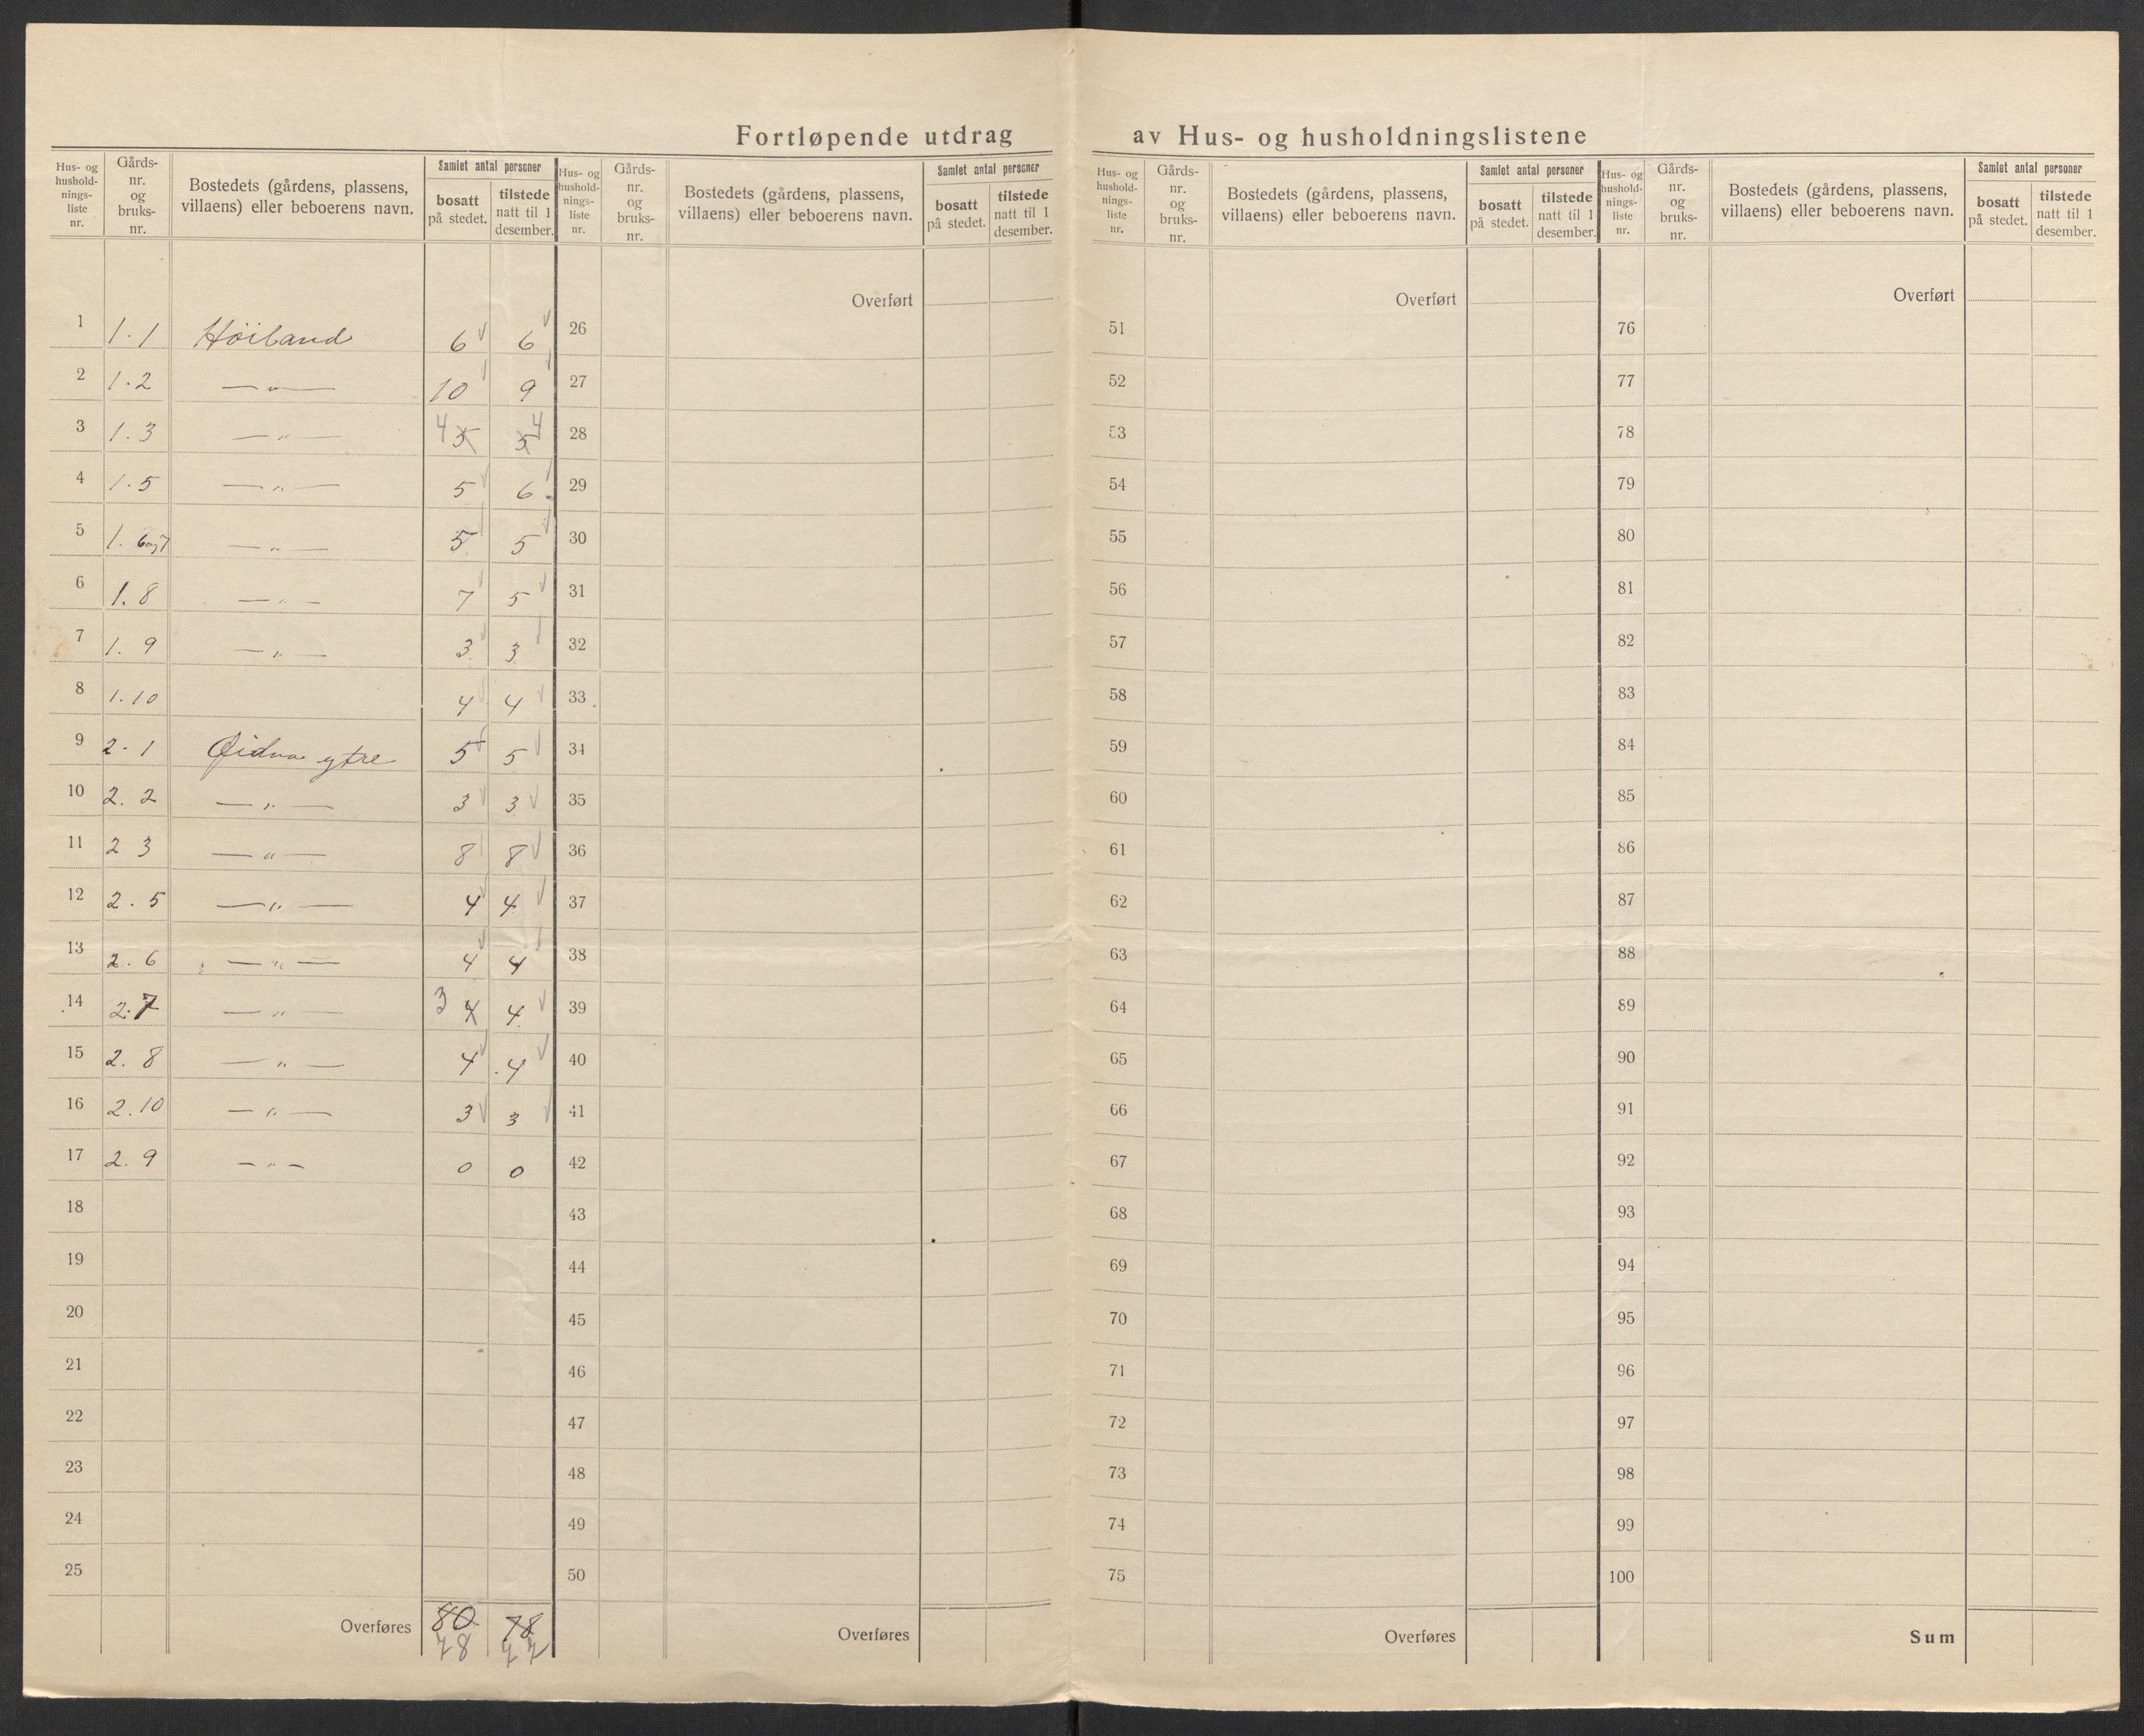 Fortløpende utdrag av Hus- og husholdningslistene
Hus- og hushold- nings- liste nr.
Gårds- nr. og bruks- nr.
Bostedets (gårdens, plassens, villaens) eller beboerens navn.
Samlet antal personer
bosatt på stedet.
tilstede natt til 1 desember.
1 1.1 Höiland 6 6
2 1.2 —„— 10 9
3 1.3 —„— 4 5 5 4
4 1.5 —„— 5 6
5 1. 6og7 —„— 5 5
6 1.8 —„— 7 5
7 1. 9 —„— 3 3
8 1.10 4 4
9 2.1 Øidna ytre 5 5
10 2. 2 —„— 3 3
11 2 3 —„— 8 8
12 2. 5 —„— 4 4
13 2. 6 —„— 4 4
14 2.7 —„— 3 4 4
15 2. 8 —„— 4 4
16 2.10 —„— 3 3
17 2. 9 —„— 0 0
18
19
20
21
22
23
24
25
Overføres 80 78
78 77
Hus- og hushold- nings- liste nr.
Gårds- nr. og bruks- nr.
Bostedets (gårdens, plassens, villaens) eller beboerens navn.
Samlet antal personer
bosatt på stedet.
tilstede natt til 1 desember.
Overført
26
27
28
29
30
31
32
33
34
35
36
37
38
39
40
41
42
43
44
45
46
47
48
49
50
Overføres
Hus- og hushold- nings- liste nr.
Gårds- nr. og bruks- nr.
Bostedets (gårdens, plassens, villaens) eller beboerens navn.
Samlet antal personer
bosatt på stedet.
tilstede natt til 1 desember.
Overført
51
52
53
54
55
56
57
58
59
60
61
62
63
64
65
66
67
68
69
70
71
72
73
74
75
Overføres
Hus- og hushold- nings- liste nr.
Gårds- nr. og bruks- nr.
Bostedets (gårdens, plassens, villaens) eller beboerens navn.
Samlet antal personer
bosatt på stedet.
tilstede natt til 1 desember.
Overført
76
77
78
79
80
81
82
83
84
85
86
87
88
89
90
91
92
93
94
95
96
97
98
99
100
Sum